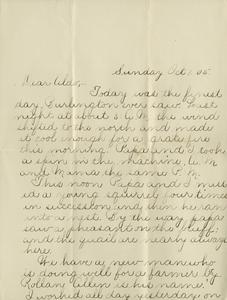 Sunday Oct 1. 05
Dear Alda,
Today was the finest
day Burlington ever saw. Last
night at about 5 P.M. the wind
shifted to the north and made
it cool enough for a grate fire
this morning. Papa and I took
a spin in the machine, A.M.
and Mama the same P.M.
This noon Papa and I
a young squirrel four times
in succession and then he ran
into a nest. By the way papa
saw a pheasant on the bluff
and the quail are nearly always
here.
We have a new man who
is doing well for a farmer by
is his name.
I worked all day yesterday on